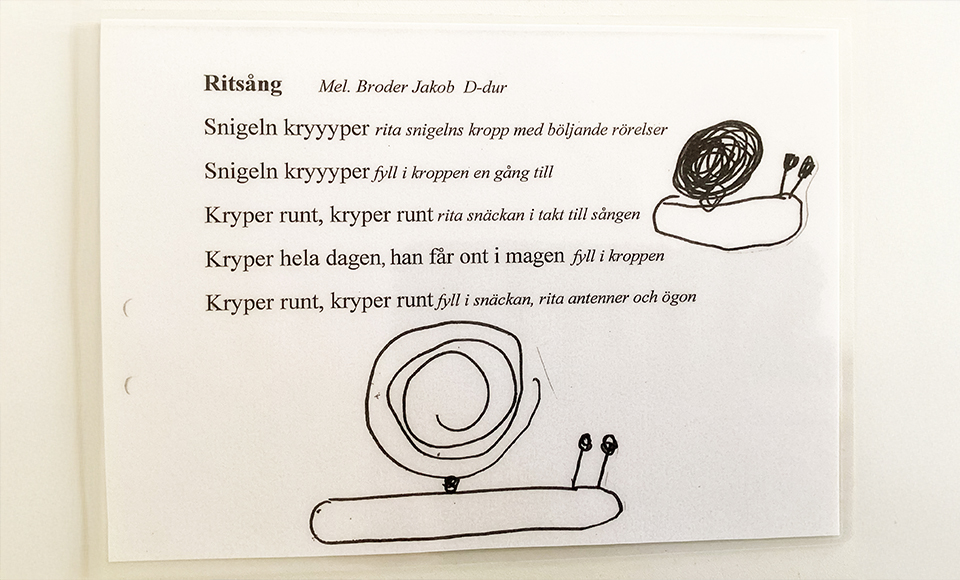 Ritsång Mel. Broder Jakob D-dur
Snigeln kryyyper rita snigelns kropp med böljande rörelser
Snigeln kryyyper fyll i kroppen en gång till
Kryper runt, kryper runt rita snäckan i takt till sången
Kryper hela dagen, han får ont i magen fyll i kroppen
Kryper runt, kryper runt fyll i snäckan, rita antenner och ögon